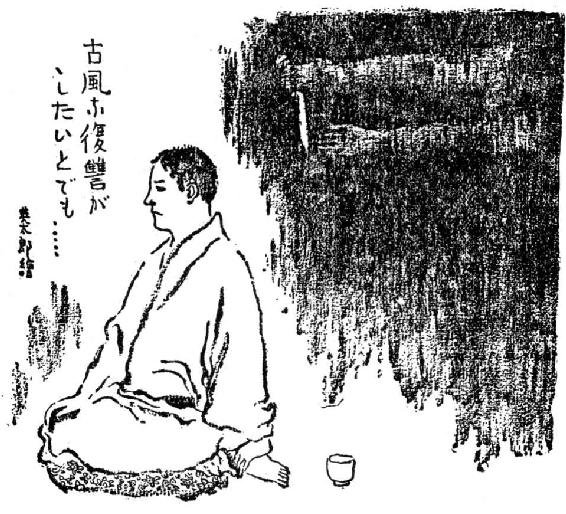 古風な復讐が
したいとでも……
英太郎繪